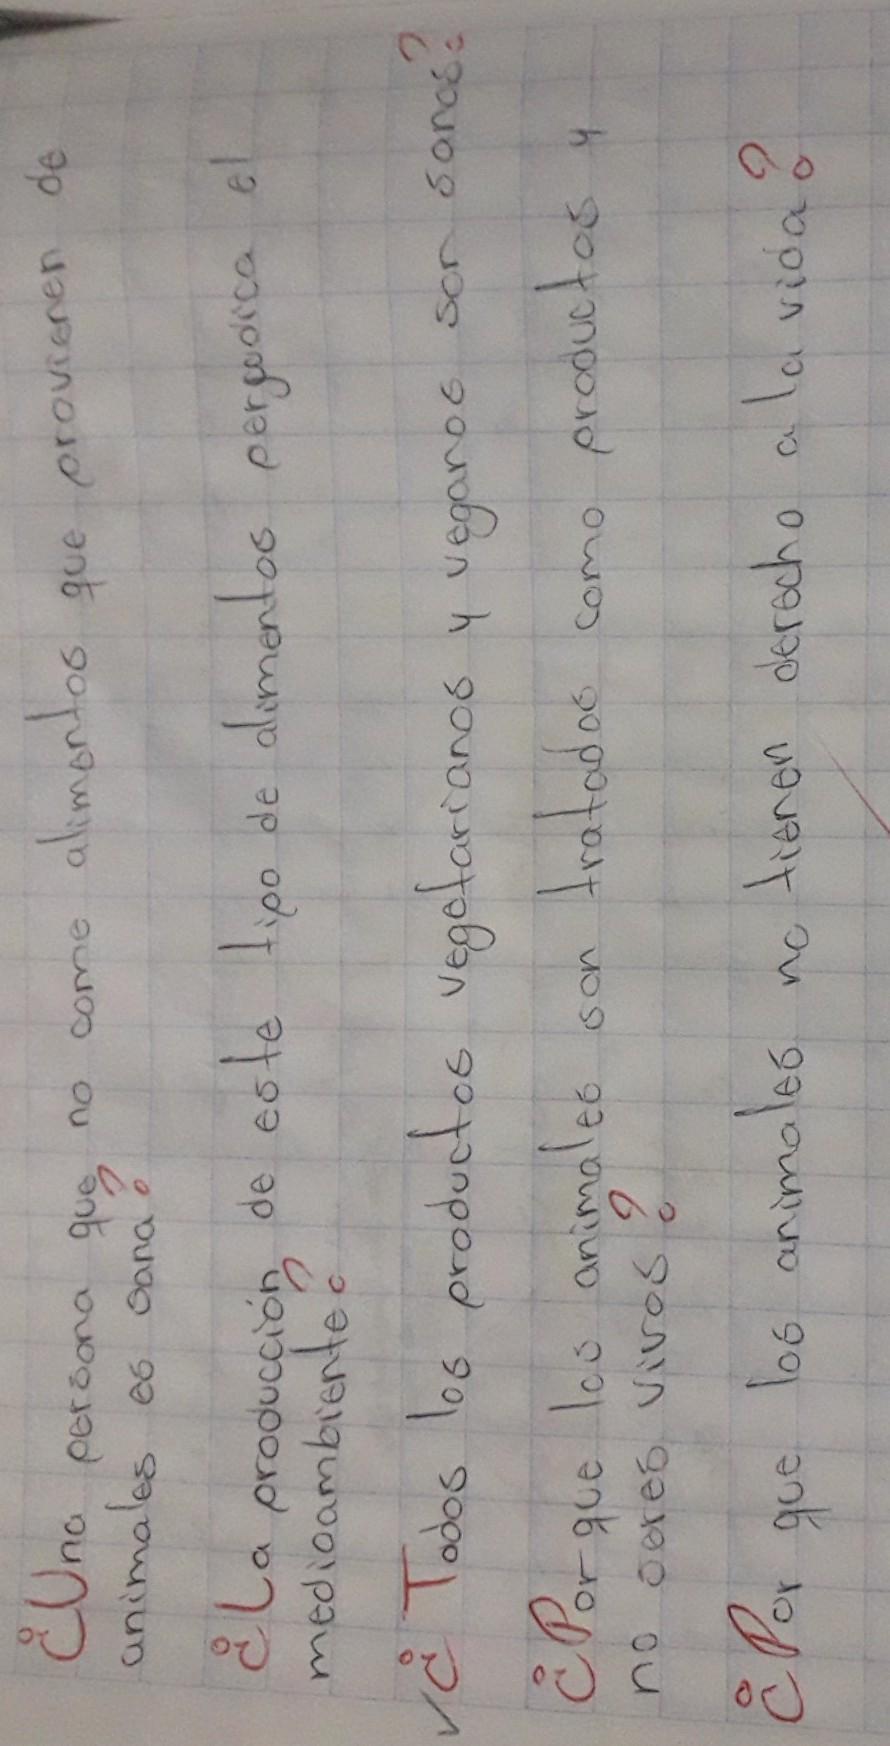 ¿Una persona que no come alimentos que provienen de
animales es sana?
¿La producción de este tipo de alimentos perjudica el
medioambiente?
✓¿Todos los productos vegetarianos y veganos son sanos?
¿Por que los animales son tratados como productos y
no seres vivos?
¿Por que los animales no tienen derecho a la vida?